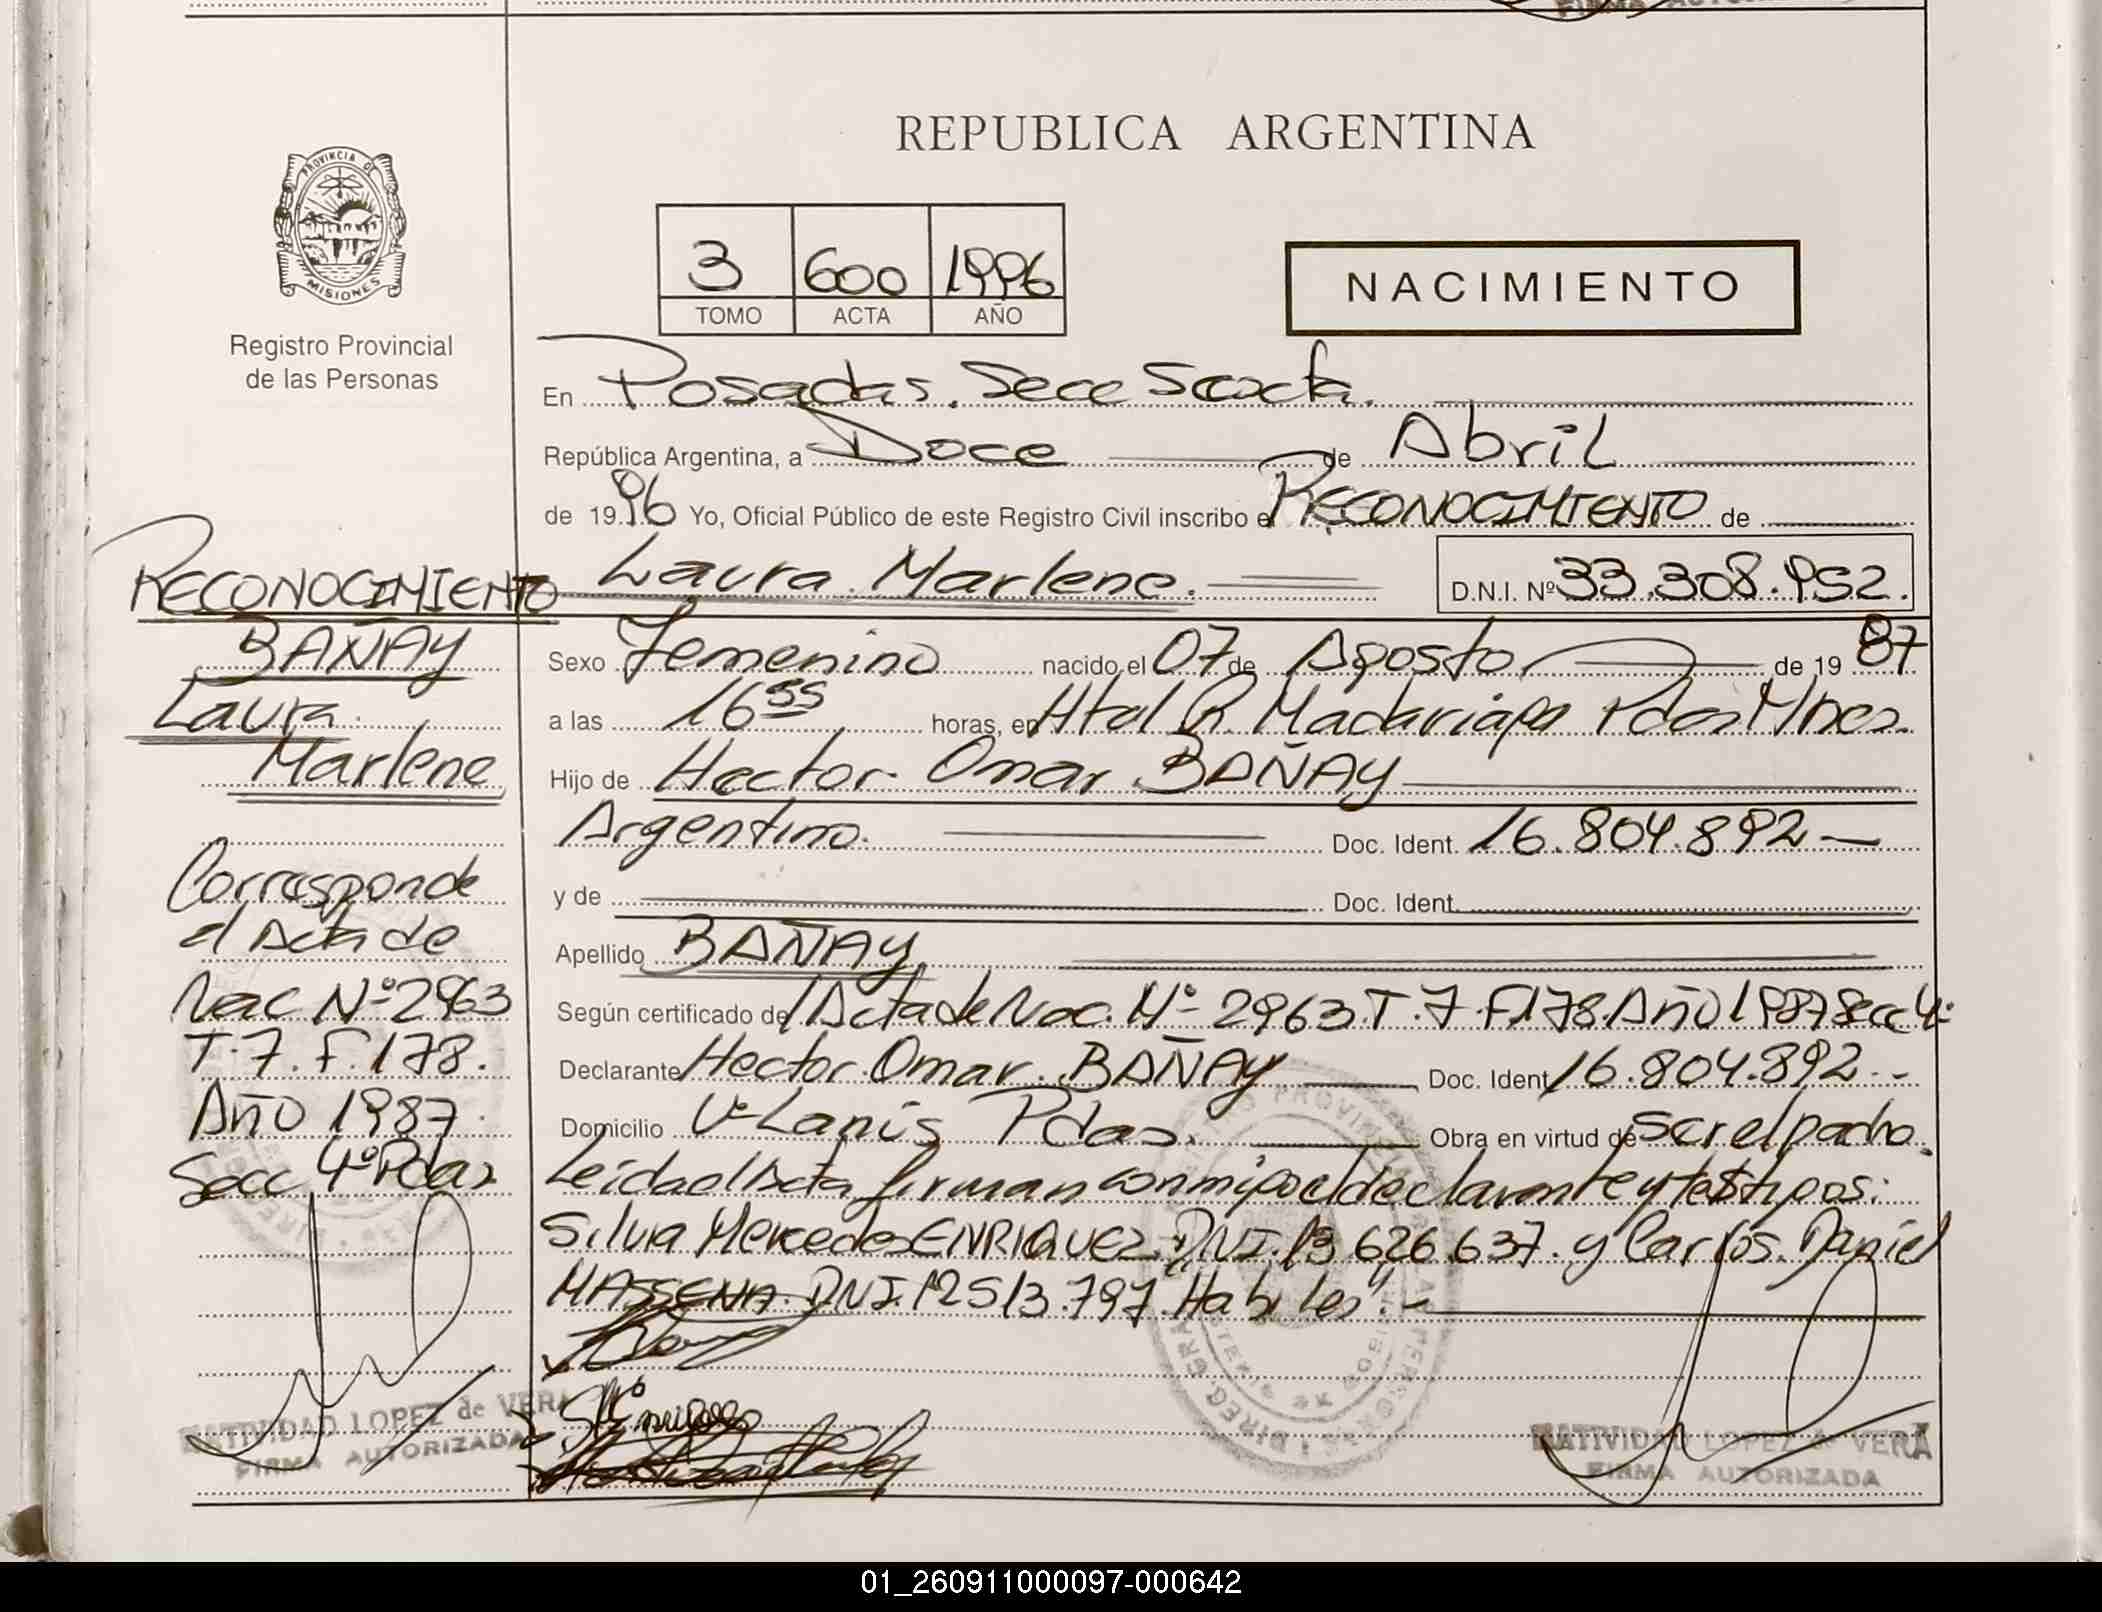 REPUBLICA ARGENTINA
PROVINCIA DE
MISIONES
Registro Provincial
de las Personas
3 600 1996
TOMO ACTA AÑO
NACIMIENTO
En Posadas. Secc Sexta.
República Argentina, a Doce de Abril
de 19 96 Yo, Oficial Público de este Registro Civil inscribo el RECONOCIMIENTO de
Laura Marlene. D.N.I. Nº 33.308.952.
Sexo Femenino nacido el 07 de Agosto de 19 87
a las 16 55 horas, en Htal R. Madariaga Pdas Mnes.
Hijo de Hector Omar BAÑAY
Argentino. Doc. Ident. 16.804.892
y de Doc. Ident.
Apellido BAÑAY
Según certificado de Acta de Nac. Nº 2963.T.7.F178.Año 1987 Secc 4º
Declarante Hector Omar BAÑAY Doc. Ident. 16.804.892.-
Domicilio Vª Lanús Pdas. Obra en virtud de Ser el padre.
Leida el Acta firman conmigo el declarante y testigos:
Silvia Mercedes ENRIQUEZ DNI.13.626.637. y Carlos Daniel
MASSENA. DNI.12513.797 "Habiles".-
NATIVIDAD LOPEZ de VERA
FIRMA AUTORIZADA
RECONOCIMIENTO
BAÑAY
Laura
Marlene
Corresponde
al Acta de
Nac Nº 2963
T.7.F.178.
Año 1987.
Secc 4º Pdas
NATIVIDAD LOPEZ de VERA
FIRMA AUTORIZADA
01_260911000097-000642